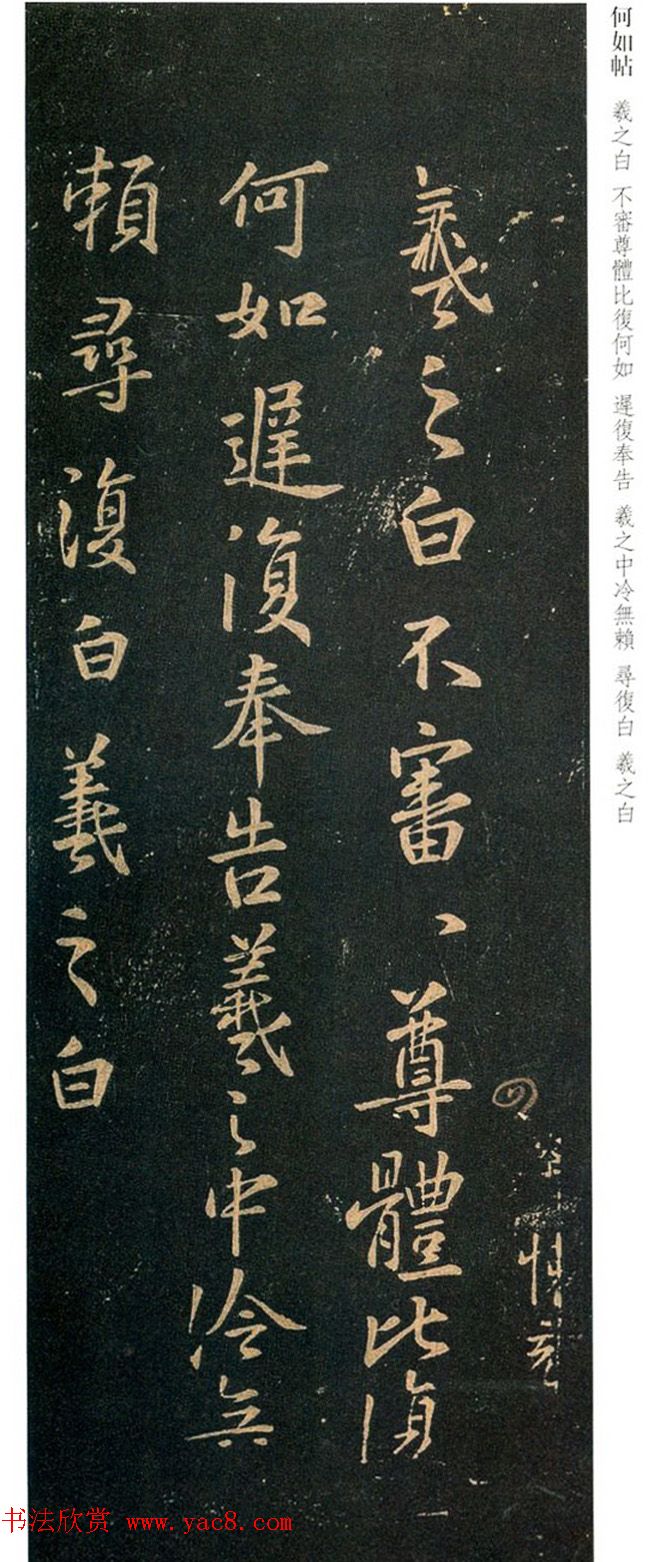 何如帖 羲之白 不審尊體比復何如 遲復奉告 羲之中冷無賴 尋復白 羲之白
羲之白不審、尊體比復
何如遲復奉告羲之中冷無
賴尋復白羲之白
书法欣赏 www.yac8.com